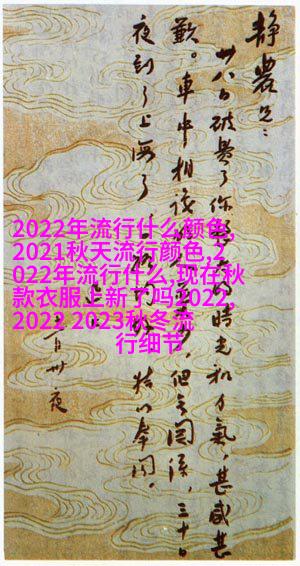 2022年流行什么颜色,
2021秋天流行颜色,2
022年流行什么,现在秋
款衣服上新了吗2022,
2022 2023秋冬流
行细节
静農兄：
廿八日破費了你 的時光和力氣，甚感甚
歉。車中相 ，但 関係，三十日
夜到了上海了 特以奉聞。
月卅夜